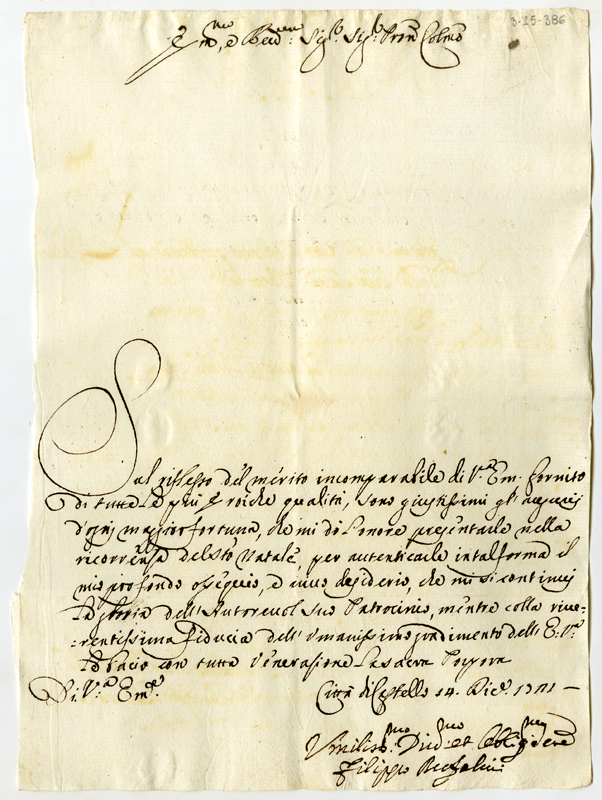 3-25-386
E.mo, e Rev.mo Sig.r Sig.r Pron Colmo
Sul riflesso del merito incomparabile di V.a Em. fornito
di tutte le più Eroiche qualità, sono giustissimi gl'augurij
d'ogni maggior fortuna, che mi dò l'onore presentarle nella
ricorrenza del Sto Natale, per autenticarle in tal forma il
mio profondo ossequio, e vivo desiderio, che mi si continui
la gloria dell'Autorevol suo Patrocinio, mentre colla rive-
rentissima fiducia dell'umanissimo gradimento dell'E. V.a
le bacio con tutta Venerazione la Sacra Porpora
Di V.a Em.a Città di Castello 14. Dice.
Umiliss.mo Div.mo et Obblig.
Filippo